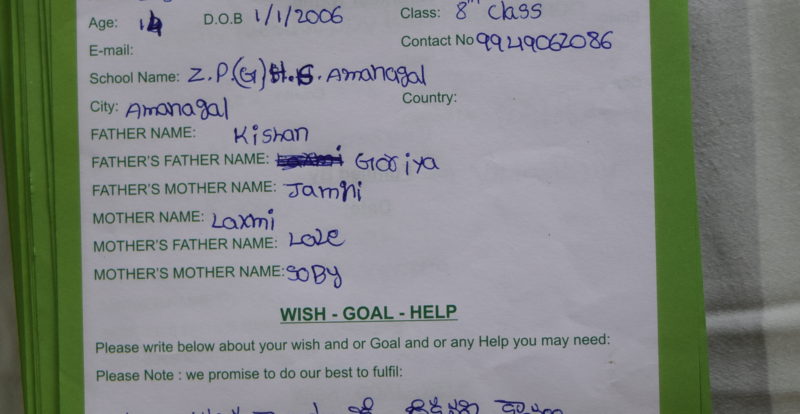 Age: 14 D.O.B 1/1/2006 Class: 8th class
E-mail: Contact No 9949062086
School Name: Z.P.(G)H.S. Amanagal
City: Amanagal Country:
FATHER NAME: Kishan
FATHER'S FATHER NAME: Gooriya
FATHER'S MOTHER NAME: Jamni
MOTHER NAME: Laxmi
MOTHER'S FATHER NAME:
MOTHER'S MOTHER NAME: SOBY
WISH - GOAL - HELP
Please write below about your wish and or Goal and or any Help you may need:
Please Note : we promise to do our best to fulfil: